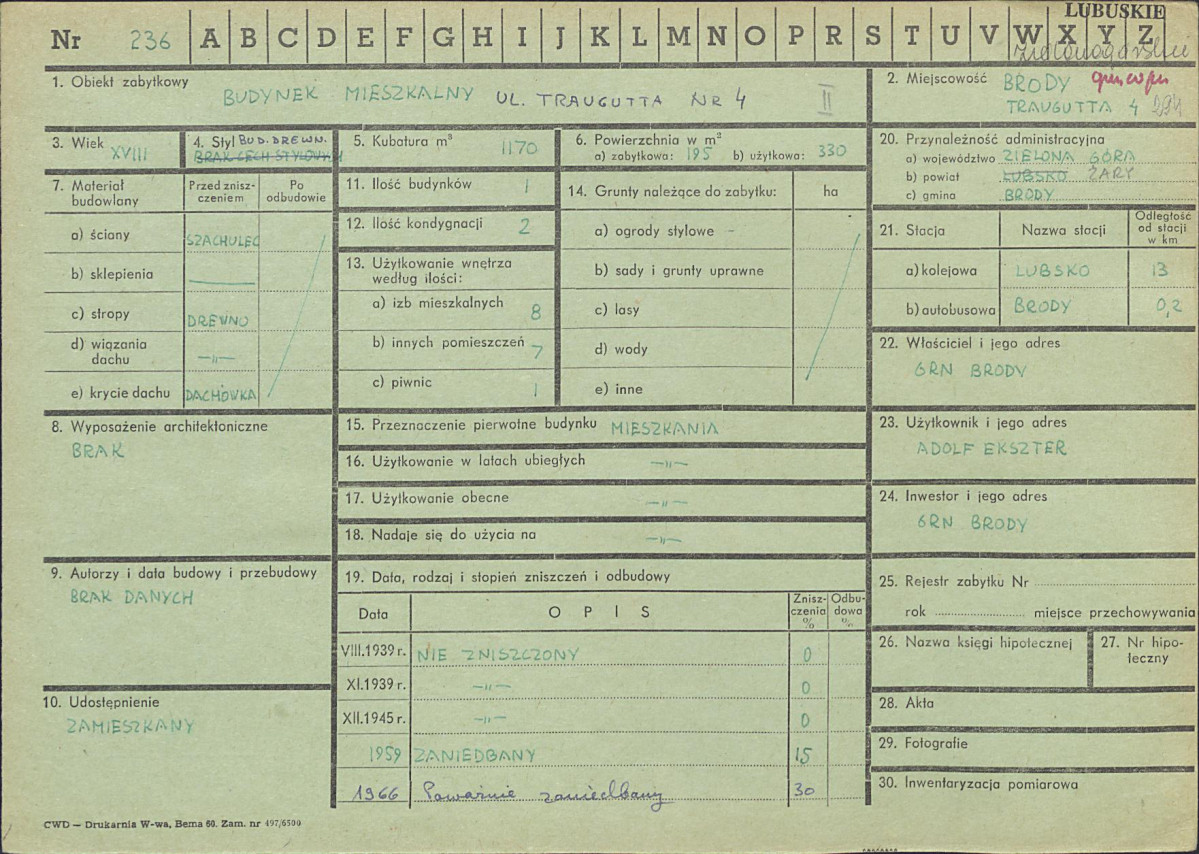 LUBUSKIE
Nr 236 A B C D E F G H I J K L M N O P R S T U V W X Y Z
zielonogórskie
1. Obiekt zabytkowy
BUDYNEK MIESZKALNY UL. TRAUGUTTA NR 4 II
2. Miejscowość BRODY
TRAUGUTTA 4 234
3. Wiek
XVIII
4. Styl BUD. DREWN.
BRAK CECH STYLOWYCH
5. Kubatura m³
1170
6. Powierzchnia w m²
a) zabytkowa: 195 b) użytkowa: 330
20. Przynależność administracyjna
a) województwo ZIELONA GÓRA
b) powiat LUBSKO ŻARY
c) gmina BRODY
7. Materiał budowlany
Przed znisz-
czeniem
Po
odbudowie
a) ściany SZACHULEC
b) sklepienia —
c) stropy DREWNO
d) wiązania
dachu —„—
e) krycie dachu DACHÓWKA
11. Ilość budynków 1
12. Ilość kondygnacji 2
13. Użytkowanie wnętrza
według ilości:
a) izb mieszkalnych 8
b) innych pomieszczeń 7
c) piwnic 1
14. Grunty należące do zabytku: ha
a) ogrody stylowe -
b) sady i grunty uprawne
c) lasy
d) wody
e) inne
21. Stacja Nazwa stacji
Odległość
od stacji
w km
a) kolejowa LUBSKO 13
b) autobusowa BRODY 0,2
22. Właściciel i jego adres
GRN BRODY
8. Wyposażenie architektoniczne
BRAK
15. Przeznaczenie pierwotne budynku MIESZKANIA
16. Użytkowanie w latach ubiegłych —„—
17. Użytkowanie obecne —„—
18. Nadaje się do użycia na —„—
23. Użytkownik i jego adres
ADOLF EKSZTER
24. Inwestor i jego adres
GRN BRODY
9. Autorzy i data budowy i przebudowy
BRAK DANYCH
19. Data, rodzaj i stopień zniszczeń i odbudowy
Data OPIS
Znisz-
czenia
%
Odbu-
dowa
%
VIII.1939 r. NIE ZNISZCZONY 0
XI.1939 r. —„— 0
XII.1945 r. —„— 0
1959 ZANIEDBANY 15
1966 Poważnie zaniedbany 30
25. Rejestr zabytku Nr
rok miejsce przechowywania
26. Nazwa księgi hipotecznej
27. Nr hipo-
teczny
10. Udostępnienie
ZAMIESZKANY
28. Akta
29. Fotografie
30. Inwentaryzacja pomiarowa
CWD — Drukarnia W-wa, Bema 60. Zam. nr 497/6500